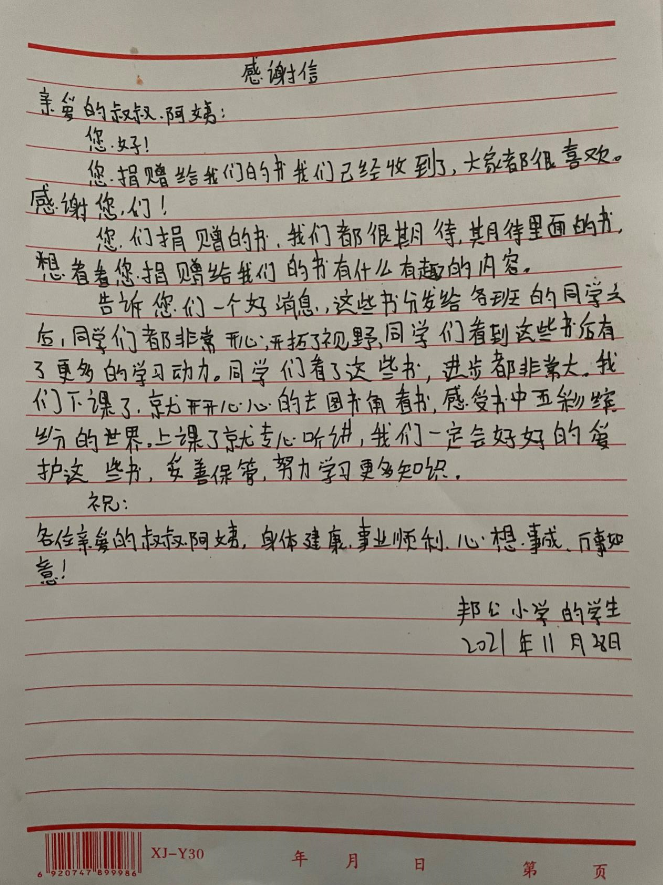 感谢信
亲爱的叔叔.阿姨:
您.好!
您.捐赠给我们的书我们已经收到了,大家都很喜欢。
感谢您.们!
您.们捐赠的书,我们都很期待,期待里面的书,
想着看您.捐赠给我们的书有什么有趣的内容。
告诉您.们一个好消息.,这些书分发给各班的同学之
后,同学们都非常开心,开拓了视野,同学们看到这些书后有
了更多的学习动力。同学们看了这些书,进步都非常大。我
们下课了,就开开心心的去图书角看书,感受书中五彩缤
纷的世界。上课了就专心听讲,我们一定会好好的爱
护这些书,妥善保管,努力学习更多知识。
祝:
各位亲爱的叔叔.阿姨,身体健康.事业顺利.心.想.事成、万事如
意!
邦公小学的学生
2021年11月28日
6920747899986
XJ-Y30
年 月 日 第 页